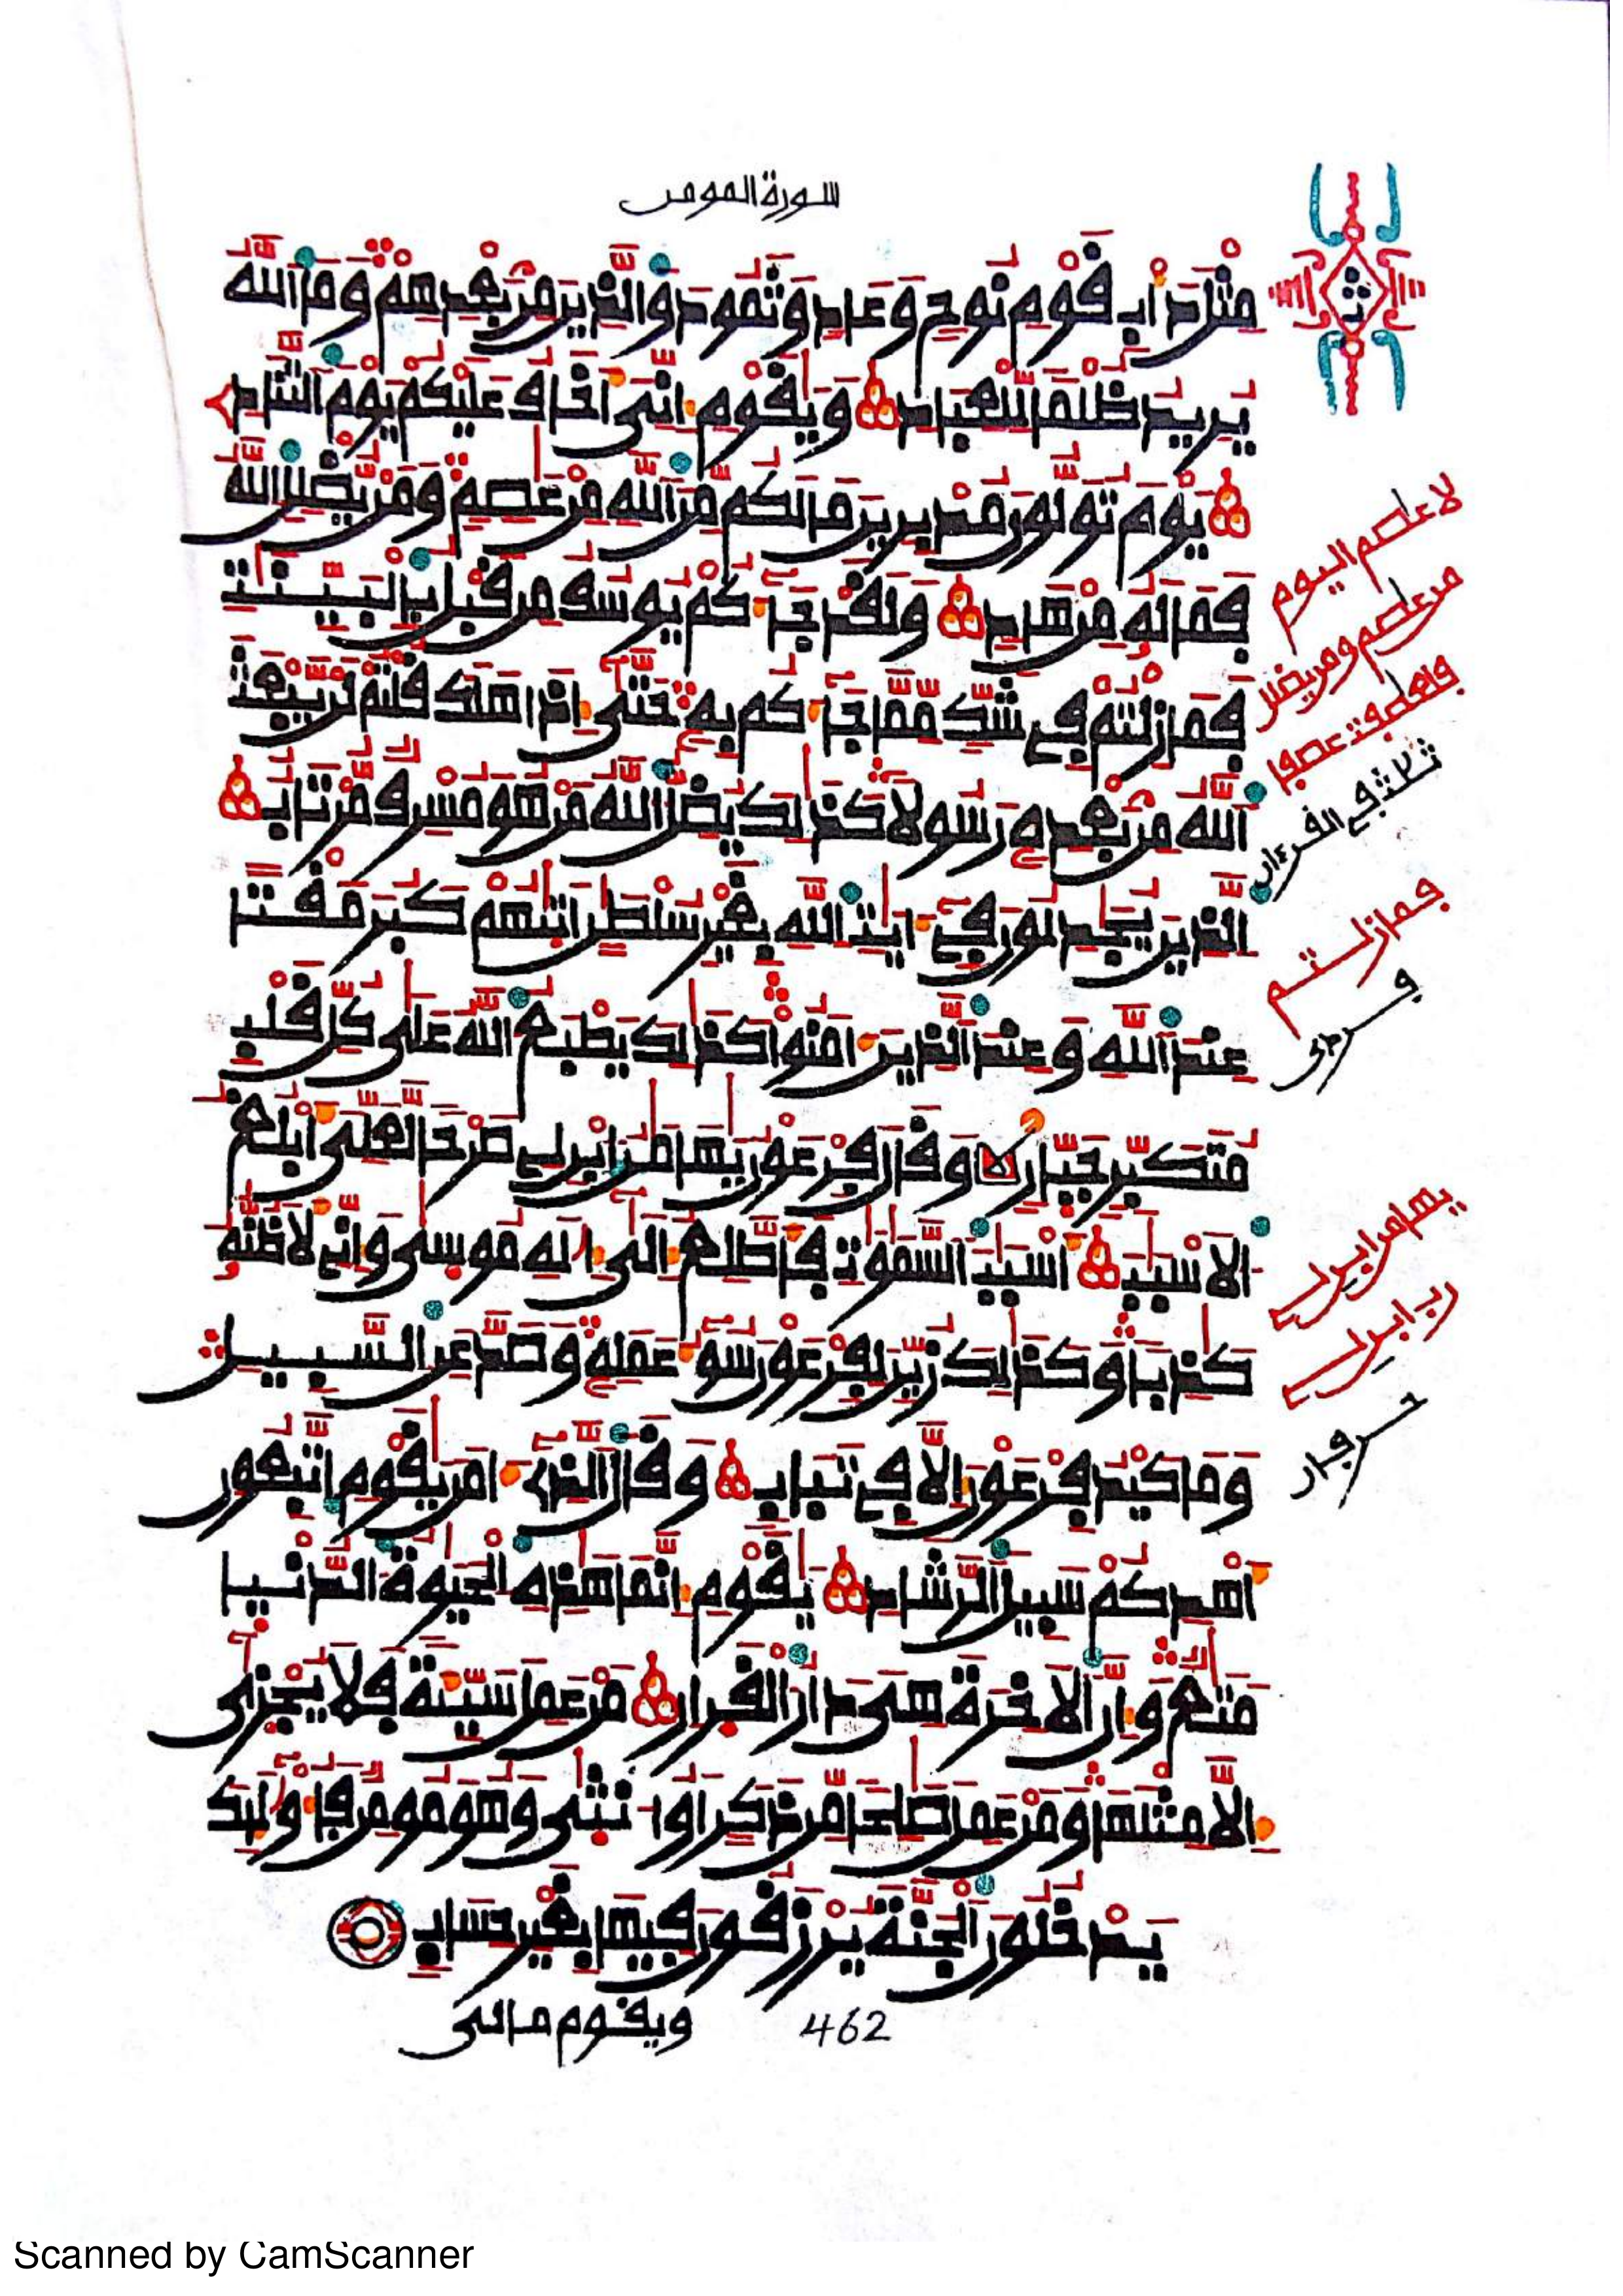 سورة المومن
مثل داب قوم نوح وعاد وثمود والذين من بعدهم وما الله
يريد ظلما للعباد ويقوم اني اخاف عليكم يوم التناد
يوم تولون مدبرين مالكم من الله من عصم ومن يضلل الله
فما له من هاد ولقد جاكم يوسف من قبل بالبينت
فما زلتم في شك مما جاكم به حتى اذا هلك قلتم لن يبعث
الله من بعده رسولا كذلك يضل الله من هو مسرف مرتاب
الذين يجدلون في ايت الله بغير سلطن اتيهم كبر مقتا
عند الله وعند الذين امنوا كذلك يطبع الله على كل قلب
متكبر جبار وقال فرعون يهامن ابن لي صرحا لعلي ابلغ
الاسبب اسبب السموت فاطلع الى اله موسى واني لاظنه
كذبا وكذلك زين لفرعون سو عمله وصد عن السبيل
وما كيد فرعون الا في تباب وقال الذي امن يقوم اتبعون
اهدكم سبيل الرشاد يقوم انما هذه الحيوة الدنيا
متع وان الاخرة هي دار القرار من عمل سيئة فلا يجزى
الا مثلها ومن عمل صلحا من ذكر او انثى وهو مومن فاوليك
يدخلون الجنة يرزقون فيها بغير حساب
ويقوم مالي
462
لا عاصم اليوم
من عاصم ومن يضلل
ثلثة في القرءان
فما زلتم
يهامن ابن لي
رب ابن لي
Scanned by CamScanner